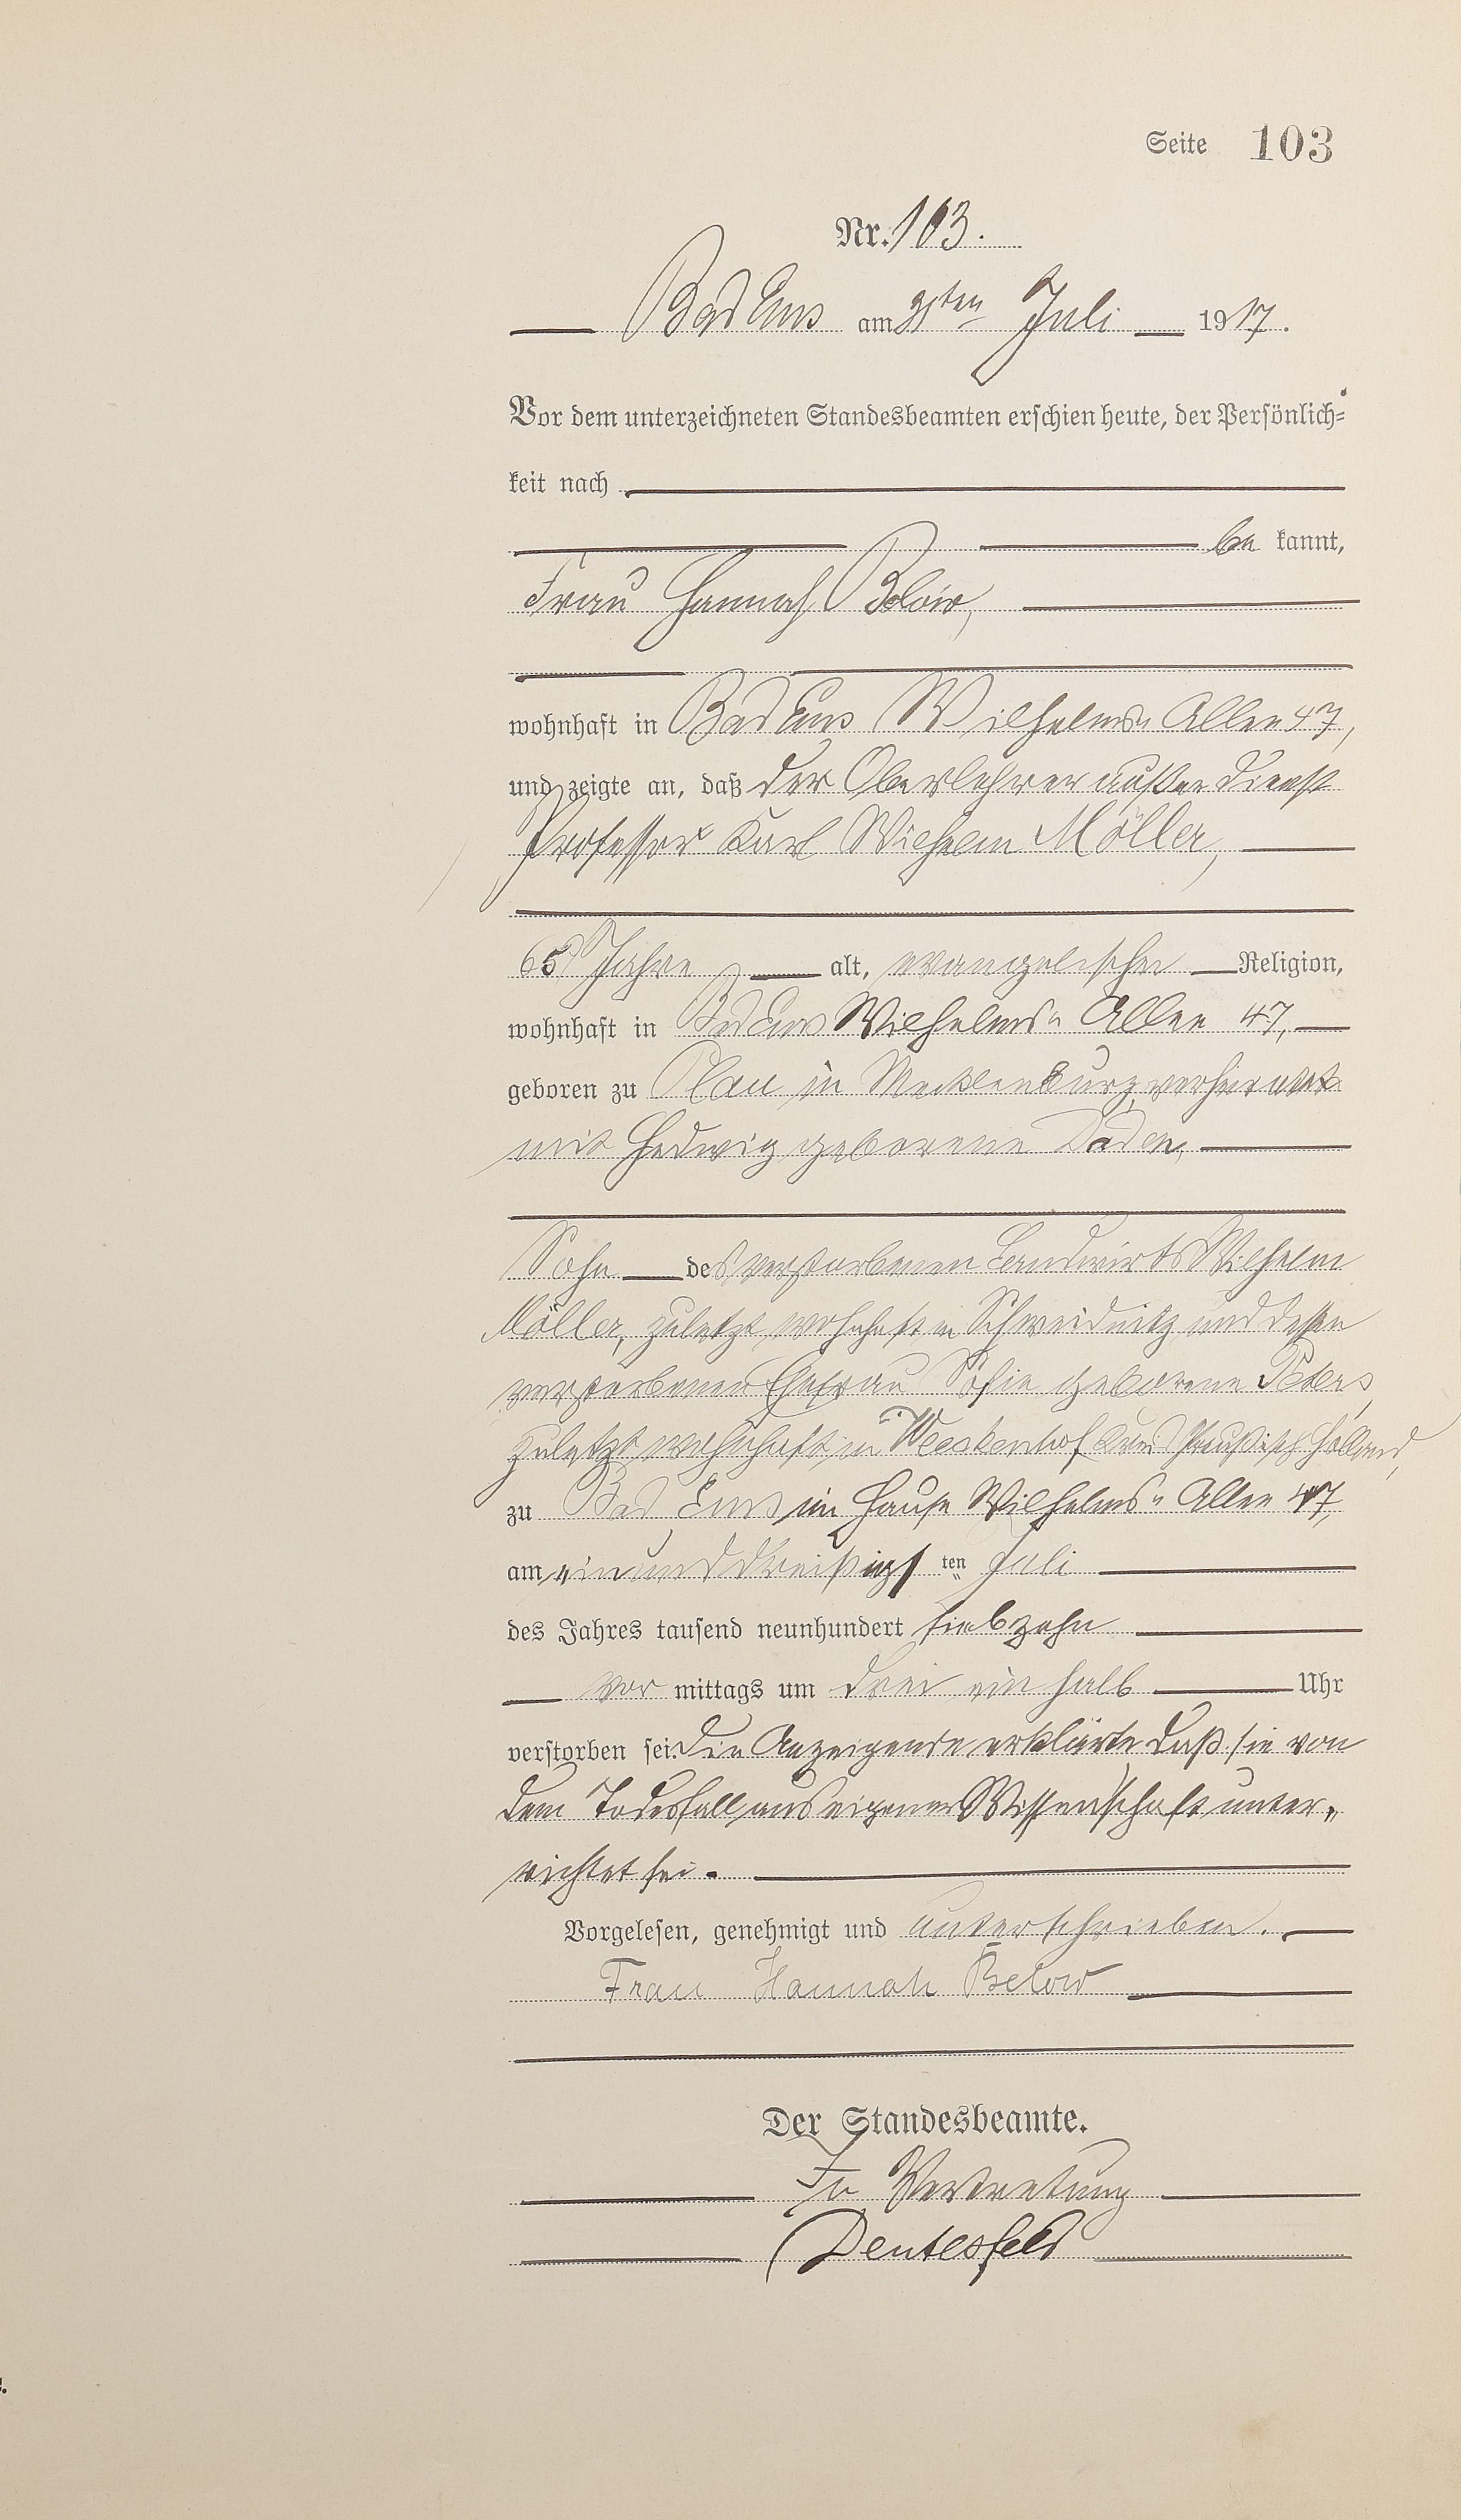 Seite 103
Nr. 103.
Bad Ems am 31ten Juli 1917.
Vor dem unterzeichneten Standesbeamten erschien heute, der Persönlich-
keit nach
be kannt,
Frau Hannah Below,
wohnhaft in Bad Ems Wilhelms-Allee 47,
und zeigte an, daß der Oberlehrer außer Dienst
Professor Karl Wilhelm Möller,
65 Jahre alt, evangelischer Religion,
wohnhaft in Bad Ems Wilhelms-Allee 47,
geboren zu Plau in Mecklenburg, verheiratet
mit Hedwig geborene Daden,
Sohn des verstorbenen Landwirts Wilhelm
Möller, zuletzt wohnhaft in Schweidnitz und dessen
verstorbenen Ehefrau Sofie geborene Peters,
zuletzt wohnhaft in Weskenhof Kreis Preußisch Holland,
zu Bad Ems im Hause Wilhelms-Allee 47,
am einunddreißigsten Juli
des Jahres tausend neunhundert siebzehn
vor mittags um drei ein halb Uhr
verstorben sei. Die Anzeigende erklärte daß sie von
dem Todesfall aus eigener Wissenschaft unter-
richtet sei.
Vorgelesen, genehmigt und unterschrieben.
Frau Hannah Below
Der Standesbeamte.
In Vertretung